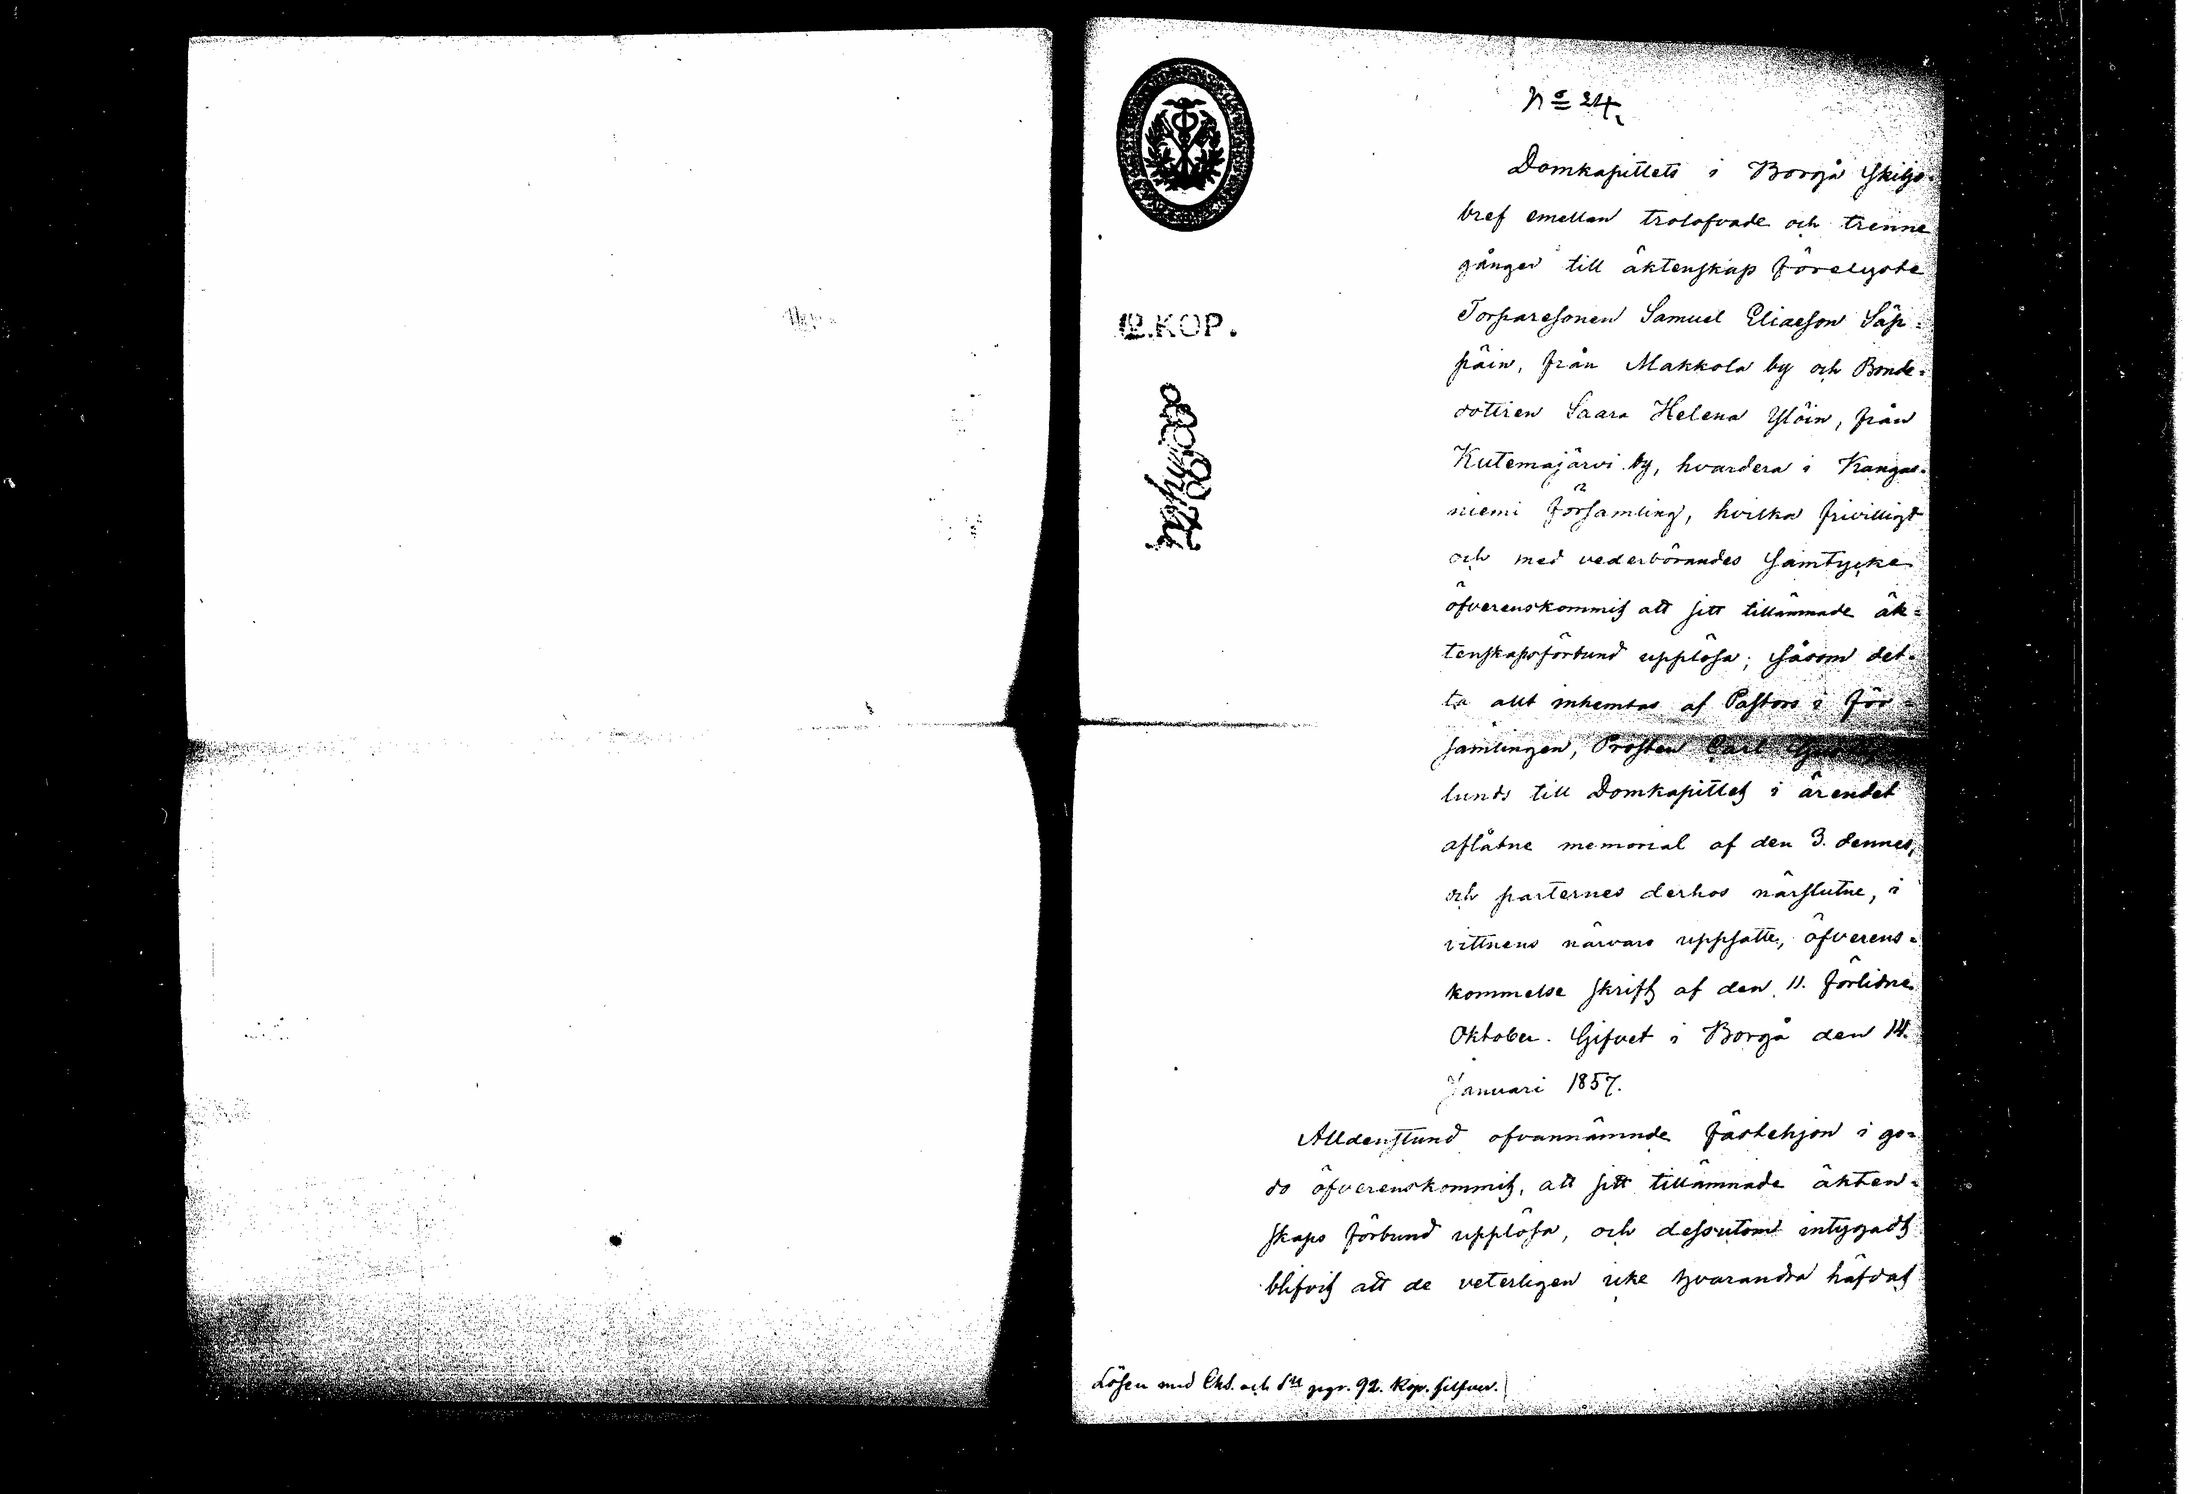 No 24.
Domkapitlets i Borgå Skiljo-
bref emellan trolofvade och trenne
gånger till äktenskap förelyste
Torparesonen Samuel Eliaeson Säp-
päin, från Makkola by och Bonde-
dottren Saara Helena Ylöin, från
Kutemajärvi by, hvardera i Kangas-
niemi församling, hvilka frivilligt
och med vederbörandes samtycke
öfverenskommit att sitt tillämnade äk-
tenskapsförbund upplösa; såsom det-
ta allt inhemtas af Pastors i för-
samlingen, Prosten Carl
lunds till Domkapitlet i ärendet
aflåtne memorial af den 3. dennes,
och parternes derhos närslutne, i
vittnens närvaro uppsatte, öfverens-
kommelse skrift af den 11. förlidne
Oktober. Gifvet i Borgå den 14.
Januari 1857.
Alldenstund ofvannämnde fästehjon i go-
do öfverenskommit, att sitt tillämnade äkten-
skaps förbund upplösa, och dessutom intygadt
blifvit att de veterligen icke hvarandra häfdat
12.KOP.
Lösen med Chs. och 92. Kop. silfver.